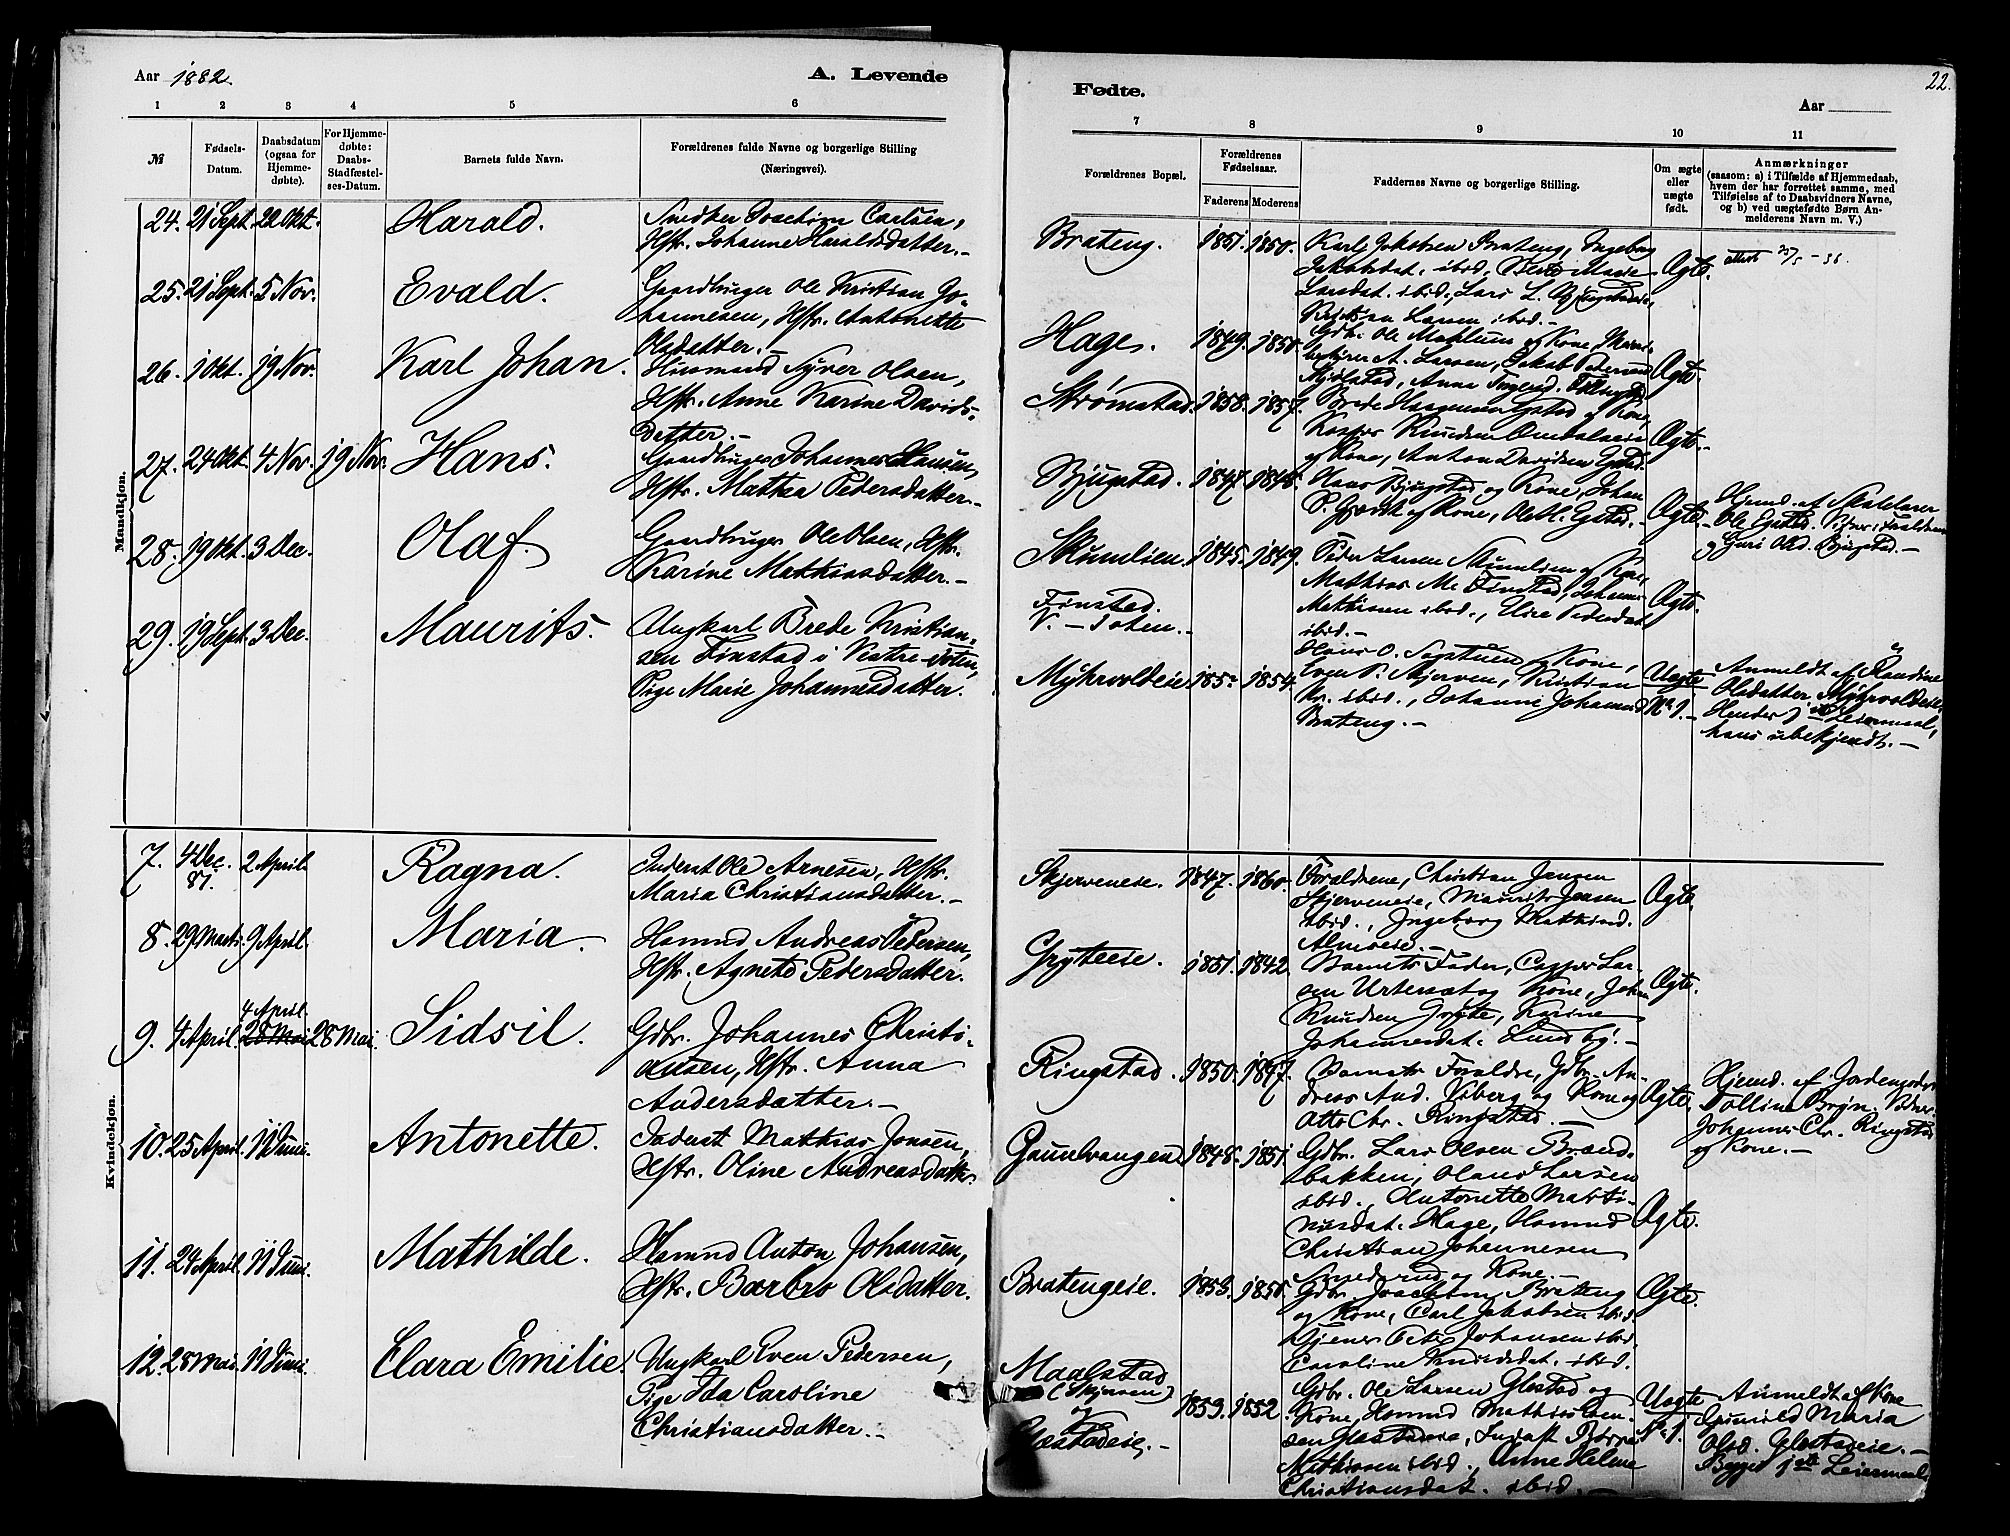 Aar 1882.
A. Levende
Fødte.
Aar
22.
1 2 3 4 5 6 7 8 9 10 11
№
Fødsels-
Datum.
Daabsdatum
(ogsaa for
Hjemme-
døbte).
For Hjemme-
døbte:
Daabs-
Stadfæstel-
ses-Datum.
Barnets fulde Navn.
Forældrenes fulde Navne og borgerlige Stilling
(Næringsvei).
Forældrenes Bopæl.
Forældrenes
Fødselsaar.
Faderens Moderens
Faddernes Navne og borgerlige Stilling.
Om ægte
eller
uægte
født.
Anmærkninger
(saasom: a) i Tilfælde af Hjemmedaab,
hvem der har forrettet samme, med
Tilføielse af to Daabsvidners Navne,
og b) ved uægtefødte Børn An-
melderens Navn m. V.)
Mandkjøn.
24. 21 Sept. 22 Okt. Harald.
Snedker Joachim Carlsen,
Hstr. Johanne Haraldsdatter.-
Brateng. 1851. 1850.
Karl Jakobsen Brateng, Ingeborg
Jakobsdat. ibid, Berte Marie
Larsdat. ibid., Lars L.
Kristian Larsen ibid.-
Ægte.
25. 21 Sept. 5 Nov. Evald.
Gaardbruger Ole Kristian Jo-
hannesen, Hstr. Antonette
Olsdatter.-
Hage. 1849. 1850.
Gdb. Ole Mæhlum og Kone,
A. Larsen, Jakob Petersen
Anna
Ægte.
26. 1 Okt. 19 Nov. Karl Johan.
Husmand Syver Olsen,
Hstr. Anne Karine Davids-
datter.-
Strømstad. 1858. 1857.
Brede Haagensen og Kone,
Kasper Knudsen
og Kone, Anton Davidsen
Ægte.-
27. 24 Okt. 4 Nov. 19 Nov. Hans.
Gaardbruger Johannes Hansen,
Hstr. Mathea Pedersdatter.-
Bjugstad. 1847. 1848.
Hans Bjugstad og Kone, Johan
P. og Kone, Ole H. Egstad.-
Ægte.
Hjemd. af Skolelærer
Ole Egstad. Vidner: Forældrene
og Guri Olsd. Bjugstad.-
28. 19 Okt. 3 Dec. Olaf.
Gaardbruger Ole Olsen, Hstr.
Karine Mathiasdatter.-
Skumlien. 1845. 1849.
Peder Larsen Skumlien og Kone,
Mathias M. Finstad, Johannes
Mathisen ibid., Elise Pedersdat.
ibid.-
Ægte.
29. 19 Sept. 3 Dec. Maurits.
Ungkarl Brede Kristian-
sen Finstad i Vestre-Toten,
Pige Marie Johannesdatter.
Finstad.
V.-Toten.-
Myhrvoldeie. 185 1854.
O. og Kone,
Even P. Skjerven, Kristian
ibid., Johanne Johannesd.
Brateng.-
Uægte
No 1.-
Anmeldt af Randine
Olsdatter Myhrvoldeie.
Hendes 1ste Leiermaal,
hans ubekjendt.-
Kvindekjøn.
7. 4 Dec. 81. 2 April. Ragna.
Inderst Ole Arnesen, Hstr.
Maria Christiansdatter.-
Skjerveneie. 1847. 1860.
Forældrene, Christian Jensen
Skjerveneie, Maurits Jensen
ibid., Ingeborg Mathisd.
Almseie.-
Ægte.
8. 29 Marts. 9 April. Maria.
Husmd Andreas Pedersen,
Hstr. Agnete Pedersdatter.
Gryteeie. 1851. 1842.
Barnets Fader, Casper Lar-
sen og Kone, Johan
Knudsen Gryte, Karine
Johannesdat. Lundby.-
Ægte.
9. 4 April. 4 April. 28 Mai 28 Mai. Sidsil.
Gdbr. Johannes Christi-
ansen, Hstr. Anna
Andersdatter.-
Ringstad. 1850. 1847.
Barnets Forældre, Gdbr. An-
dreas And. Viberg og Kone og
Otto Chr. Ringstad.-
Ægte.
Hjemd. af Jordemoder
Tolline Brÿn. Vidner:
Johannes Chr. Ringstad
og Kone.-
10. 25 April. 11 Juni. Antonette.
Inderst Mathias Jensen,
Hstr. Oline Andreasdatter.
Gaunvangen. 1848. 1851.
Gdbr. Lars Olsen Brænd-
bakken, Olaus Larsen
ibid., Antonette Marti-
nusdat. Hage, Husmd
Christian Johannesen
Smederud og Kone.-
Ægte.
11. 24 April. 11 Juni. Mathilde.
Husmd Anton Johansen,
Hstr. Barbro Olsdatter.
Bratengeie. 1853. 1850.
Gdbr. Joachim Brateng
og Kone, Carl Jakobsen ibid.
Tjener Johansen ibid.
Caroline Knudsdat. ibid.
Ægte.
12. 28 Mai. 11 Juni. Clara Emilie.
Ungkarl Even Pedersen,
Pige Ida Caroline
Christiansdatter.-
Maalstad
(Skjønsen)
og
Glæstadeie.- 1859. 1852.
Gdbr. Ole Larsen Glestad og
Kone, Husmd Mathias
Glæstadeie, Inderst
Mathisen ibid., Anne Helene
Christiansdat. ibid.-
Uægte
No 1.
Anmeldt af Kone
Gunild Maria
Olsd. Glestadeie.-
Begges 1ste Leiermaal.